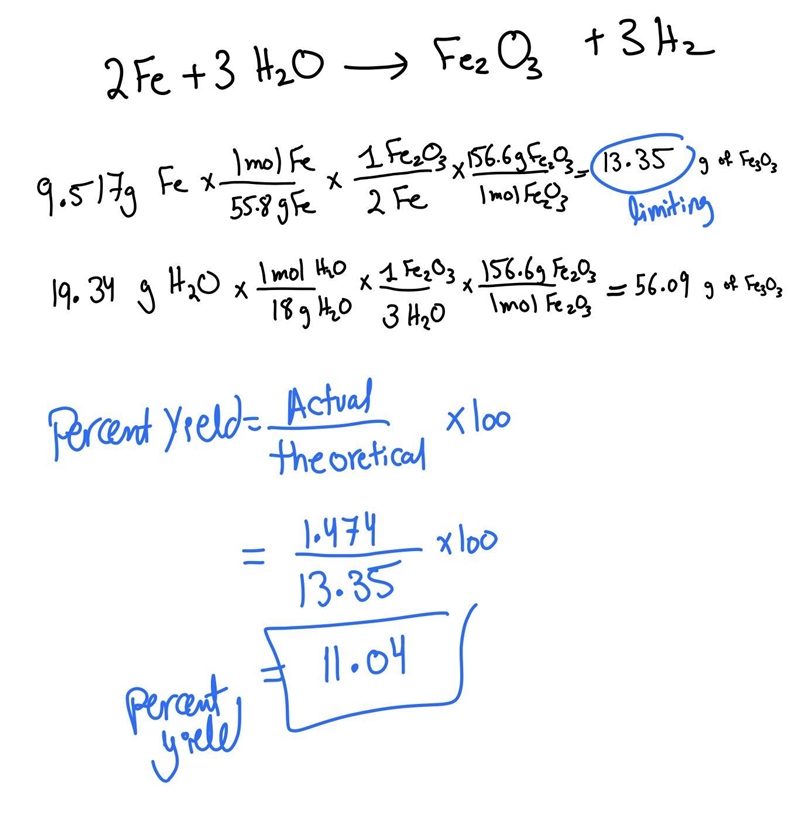 2Fe + 3 H₂O ⟶ Fe₂O₃ + 3H₂
9.517g Fe × 1mol Fe / 55.8 g Fe × 1 Fe₂O₃ / 2 Fe × 156.6g Fe₂O₃ / 1mol Fe₂O₃ = 13.35 g of Fe₃O₃
limiting
19.34 g H₂O × 1mol H₂O / 18 g H₂O × 1 Fe₂O₃ / 3 H₂O × 156.6g Fe₂O₃ / 1mol Fe₂O₃ = 56.09 g of Fe₃O₃
Percent Yield = Actual / theoretical × 100
= 1.474 / 13.35 × 100
= 11.04
percent
yield